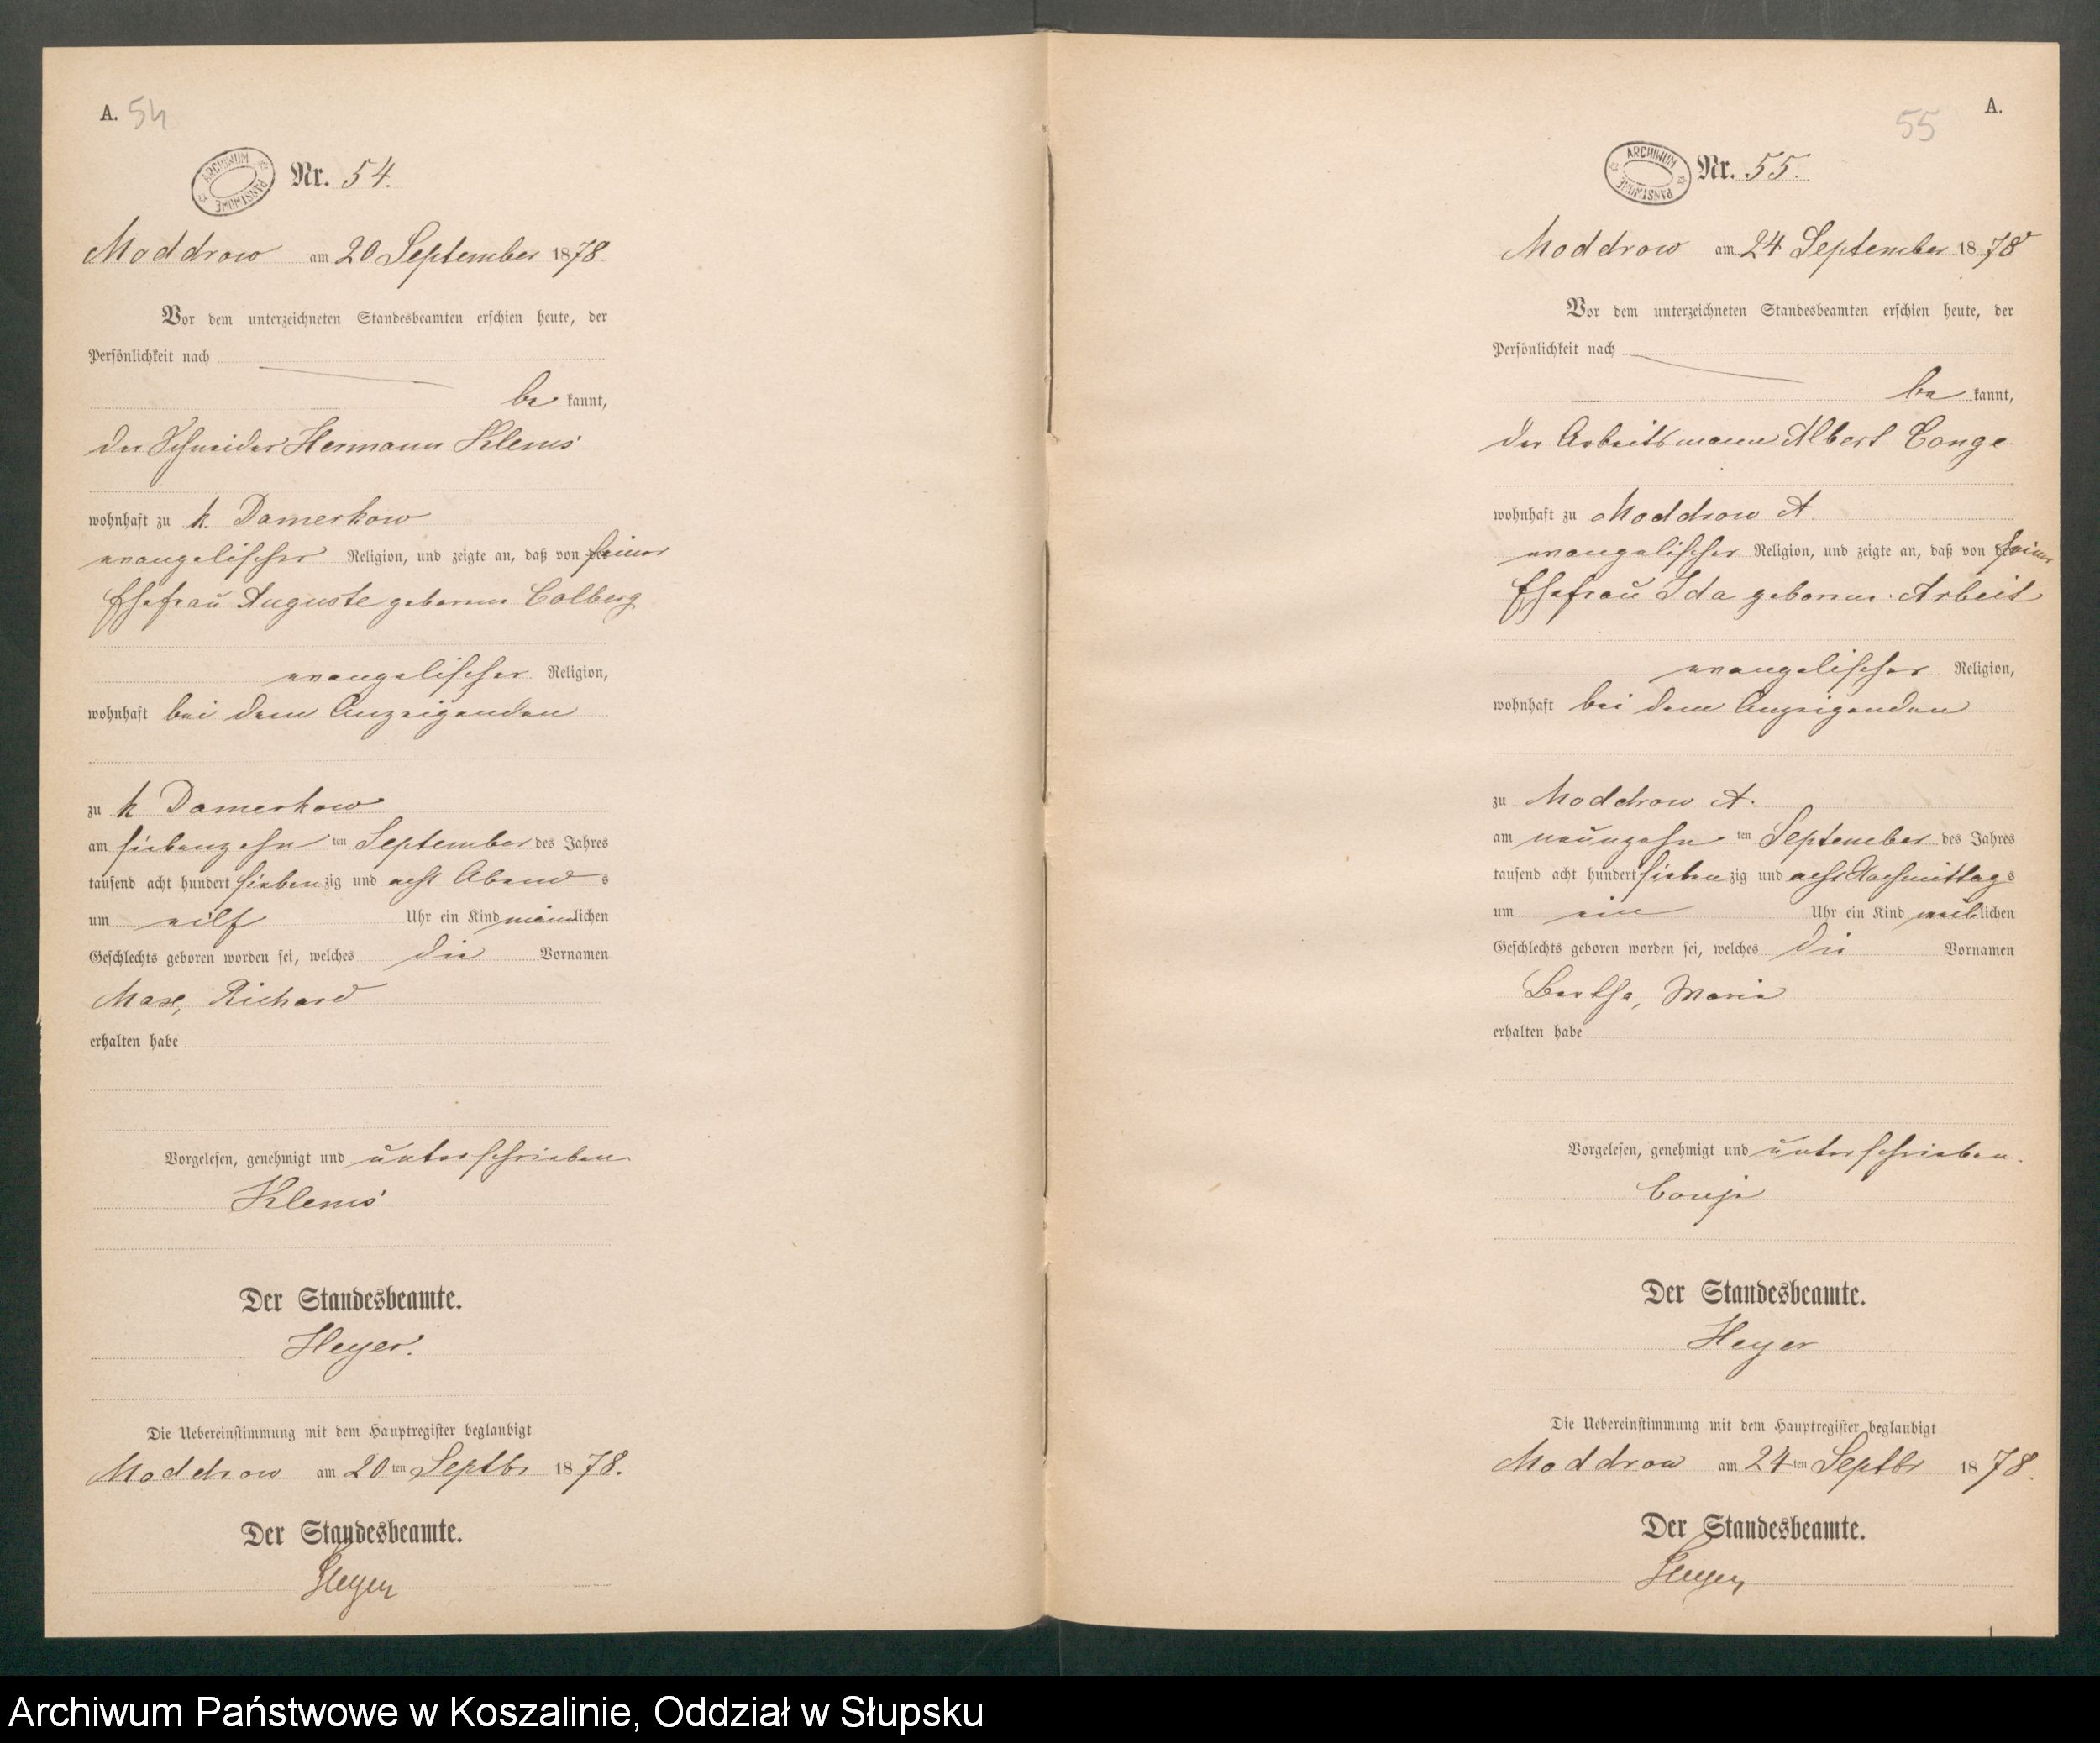 A. 54
ARCHIWUM PAŃSTWOWE
Nr. 54.
Moddrow am 20 September 1878.
Vor dem unterzeichneten Standesbeamten erschien heute, der
Persönlichkeit nach
be kannt,
der Schneider Hermann Klems
wohnhaft zu k. Damerkow
evangelischer Religion, und zeigte an, daß von seiner
Ehefrau Auguste geborene Colberg
evangelischer Religion,
wohnhaft bei dem Anzeigenden
zu k Damerkow
am siebenzehn ten September des Jahres
tausend acht hundert sieben zig und acht Abend s
um eilf Uhr ein Kind männlichen
Geschlechts geboren worden sei, welches die Vornamen
Max, Richard
erhalten habe
Vorgelesen, genehmigt und unterschrieben
Klems
Der Standesbeamte.
Heyer.
Die Uebereinstimmung mit dem Hauptregister beglaubigt
Moddrow am 20 ten Septbr 1878.
Der Standesbeamte.
Heyer
55 A.
ARCHIWUM PAŃSTWOWE
Nr. 55.
Moddrow am 24 September 1878
Vor dem unterzeichneten Standesbeamten erschien heute, der
Persönlichkeit nach
be kannt,
der Arbeitsmann Albert Conge
wohnhaft zu Moddrow A.
evangelischer Religion, und zeigte an, daß von seiner
Ehefrau Ida geborene Arbeit
evangelischer Religion,
wohnhaft bei dem Anzeigenden
zu Moddrow A.
am neunzehn ten September des Jahres
tausend acht hundert sieben zig und acht Nachmittag s
um ein Uhr ein Kind weiblichen
Geschlechts geboren worden sei, welches die Vornamen
Bertha, Maria
erhalten habe
Vorgelesen, genehmigt und unterschrieben.
Der Standesbeamte.
Heyer
Die Uebereinstimmung mit dem Hauptregister beglaubigt
Moddrow am 24 ten Septbr 1878.
Der Standesbeamte.
Heyer
Archiwum Państwowe w Koszalinie, Oddział w Słupsku